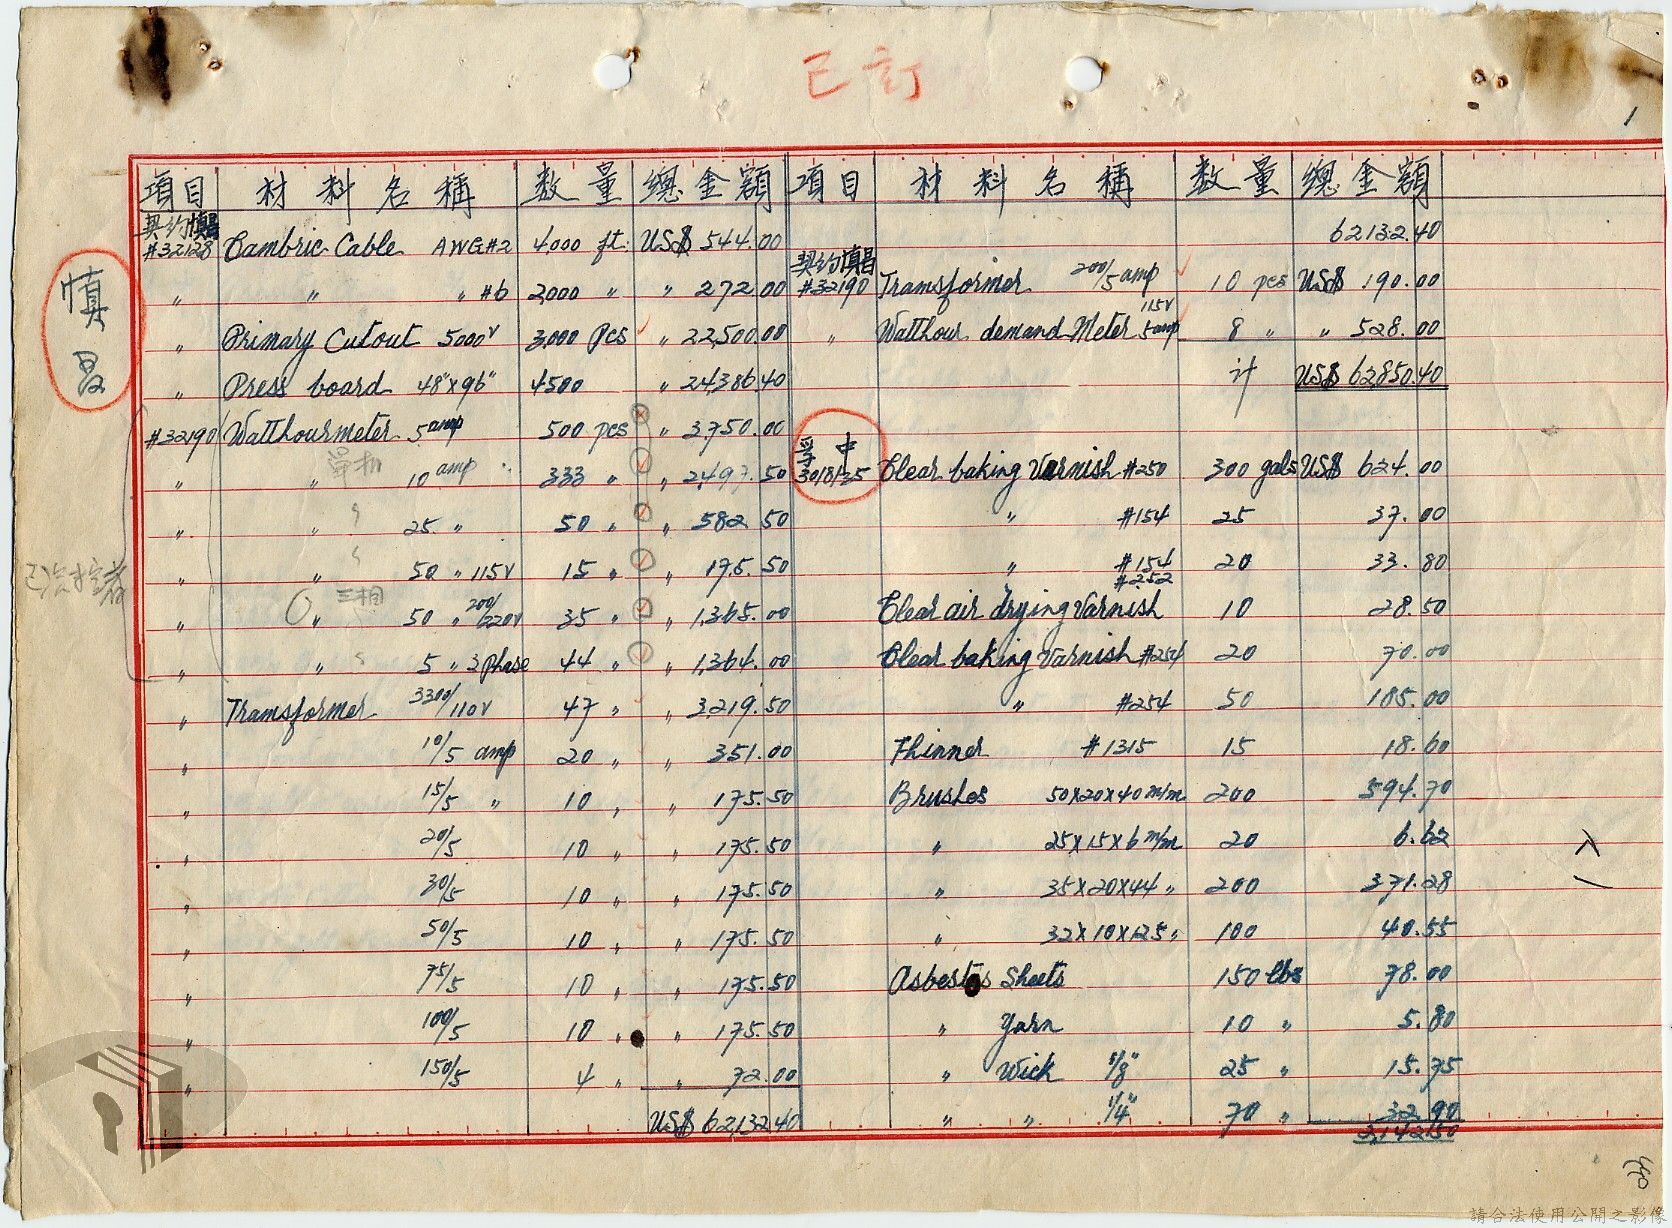 已訂
1
項目 材料名稱 數量 總金額
契約慎昌
#32128 Cambric Cable AWG#2 4,000 ft. US$ 544.00
" " " #6 2,000 " " 272.00
" Primary Cutout 5000V 3,000 Pcs " 22,500.00
" Press board 48"x96" 4500 " 24,386.40
#32190 Watthourmeter 5 amp 500 pcs " 3,750.00
" " 單相 10 amp 333 " " 2,497.50
" " 25 " 50 " " 582.50
" " 50 " 115V 15 " " 175.50
" " 三相 50 " 200/220V 35 " " 1,365.00
" " 5 " 3 Phase 44 " " 1,364.00
" Transformer 3300/110V 47 " " 3,219.50
" 10/5 amp 20 " " 351.00
" 15/5 " 10 " " 175.50
" 20/5 10 " " 175.50
" 30/5 10 " " 175.50
" 50/5 10 " " 175.50
" 75/5 10 " " 175.50
" 100/5 10 " " 175.50
" 150/5 4 " " 72.00
US$ 62,132.40
慎昌
項目 材料名稱 數量 總金額
62132.40
契約慎昌
#32190 Transformer 200/5 amp 10 pcs US$ 190.00
" Watthour demand Meter 115V 5amp 8 " " 528.00
計 US$ 62,850.40
孚中
30/8/35 Clear baking Varnish #250 300 gals US$ 624.00
" #154 25 37.00
" #154 #252 20 33.80
Clear air drying Varnish 10 28.50
Clear baking Varnish #254 20 70.00
" #254 50 185.00
Thinner #1315 15 18.60
Brushes 50x20x40 m/m 200 594.70
" 25x15x6 m/m 20 6.62
" 35x20x44 " 200 371.28
" 32x10x125 " 100 40.55
Asbestos Sheets 150 lbs 78.00
" Yarn 10 " 5.80
" Wick 1/8" 25 " 15.75
" " 1/4" 70 " 32.90
2,142.50
490
請合法使用公開之影像